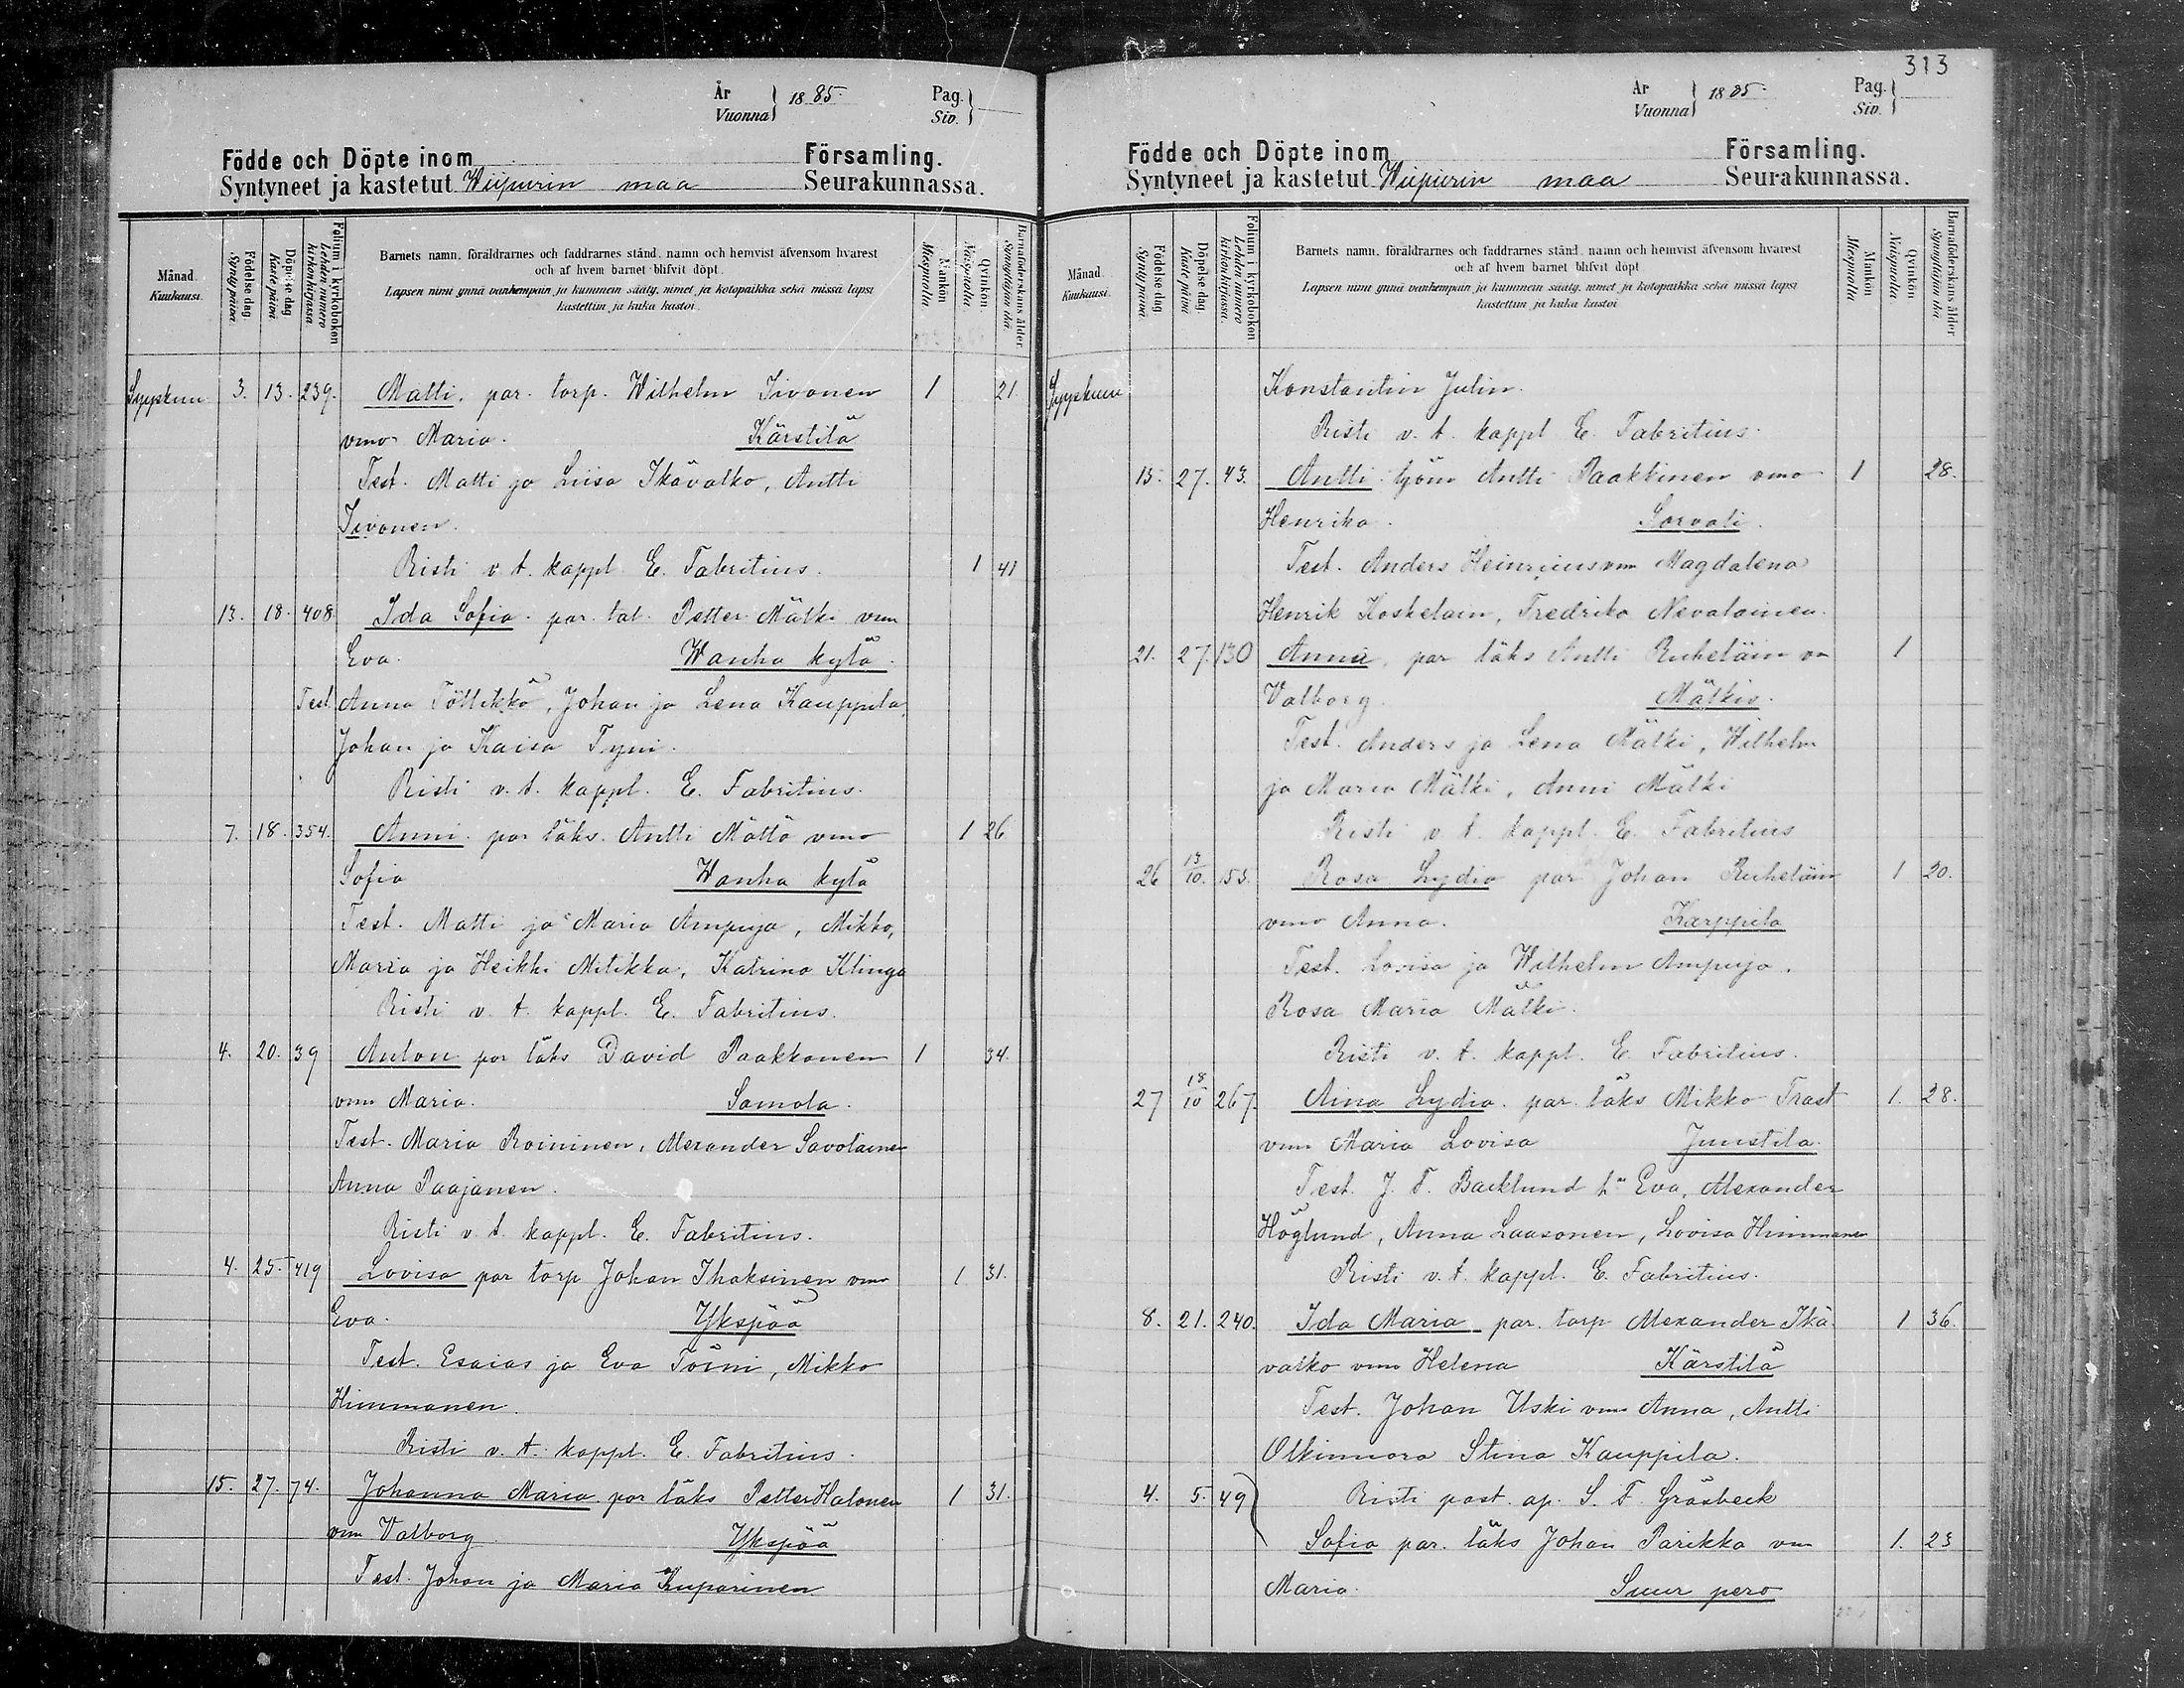 År
Vuonna } 1885.
Pag.
Siv. }
Födde och Döpte inom Församling.
Syntyneet ja kastetut Wiipurin maa Seurakunnassa.
Månad. Kuukausi.
Födelse dag. Synty päivä.
Döpelse dag. Kaste päivä.
Folium i kyrkobokon Lehden numero kirkonkirjassa.
Barnets namn, föräldrarnes och faddrarnes stånd, namn och hemvist äfvensom hvarest
och af hvem barnet blifvit döpt.
Lapsen nimi ynnä vanhempain ja kummein sääty, nimet ja kotopaikka sekä missä lapsi
kastettiin ja kuka kastoi.
Mankön Miespuolta.
Qvinkön. Naispuolta.
Barnaföderskans ålder. Synnyttäjän ikä.
Syyskuu 3. 13. 239. Matti. par. torp. Wilhelm Iivonen 1 21
vmo Maria. Kärstilä
Test. Matti ja Liisa Ikävalko, Antti
Iivonen.
Risti v. t. kappl E. Fabritius. 1 41
13. 18. 408 Ida Sofia. par. tal. Petter Mälki vmo
Eva. Wanha kylä.
Test. Anna Pöllikkö, Johan ja Lena Kauppila,
Johan ja Kaisa Tyni.
Risti v. t. kappl. E. Fabritius.
7. 18. 354. Anni. par läks. Antti Mättö vmo 1 26
Sofia Wanha kylä
Test. Matti ja Maria Ampuja, Mikko,
Maria ja Heikki Mitikka, Katrina Klinga
Risti v. t. kappl. E. Fabritius.
4. 20. 39 Anton par läks David Paakkonen 1 34.
vmo Maria. Samola.
Test. Maria Roininen, Alexander Savolainen
Anna Paajanen.
Risti v. t. kappl. E. Fabritius.
4. 25. 419 Lovisa par torp Johan Ihaksinen vmo 1 31.
Eva. Ykspää
Test. Esaias ja Eva Töini, Mikko
Himmanen.
Risti v. t. kappl. E. Fabritius.
15. 27. 74. Johanna Maria par läks Petter Halonen 1 31.
vmo Valborg Ykspää
Test. Johan ja Maria Kuparinen
313
År
Vuonna } 1885.
Pag.
Siv. }
Födde och Döpte inom Församling.
Syntyneet ja kastetut Wiipurin maa Seurakunnassa.
Månad. Kuukausi.
Födelse dag. Synty päivä.
Döpelse dag. Kaste päivä.
Folium i kyrkobokon Lehden numero kirkonkirjassa.
Barnets namn, föräldrarnes och faddrarnes stånd, namn och hemvist äfvensom hvarest
och af hvem barnet blifvit döpt
Lapsen nimi ynnä vanhempain ja kummein sääty, nimet ja kotopaikka sekä missä lapsi
kastettiin ja kuka kastoi
Mankön Miespuolta
Qvinkön Naispuolta.
Barnaföderskans ålder Synnyttäjän ikä
Syyskuu Konstantin Julin.
Risti v. t. kappl E. Fabritius.
15. 27. 43. Antti. työm Antti Paakkinen vmo 1 28.
Henrika. Sorvali.
Test. Anders Heinricius vmo Magdalena
Henrik Koskelain, Fredrika Nevalainen.
21. 27. 130 Anna, par läks Antti Ruheläin vo 1
Valborg Mälkis.
Test. Anders ja Lena Mälki, Wilhelm
ja Maria Mälki, Anni Mälki
Risti v. t. kappl. E. Fabritius
26 13/10. 155. Rosa Lydia par Johan Ruheläin 1 20.
vmo Anna. Karppila
Test. Lovisa ja Wilhelm Ampuja.
Rosa Maria Mälki.
Risti v. t. kappl. E. Fabritius.
27 18/10 267. Aina Lydia. par. läks Mikko Trast 1. 28.
vmo Maria Lovisa Juustila.
Test. J. F. Backlund Eva, Alexander
Höglund, Anna Laasonen, Lovisa Himmanen
Risti v. t. kappl. E. Fabritius.
8. 21. 240. Ida Maria par. torp Alexander Ikä- 1 36.
valko vmo Helena Kärstilä
Test. Johan Uski vmo Anna, Antti
Olkinuora Stina Kauppila.
4. 5. 49 Risti past. ap. S. F. Gräsbeck
Sofia par. läks Johan Parikka vmo 1. 23
Maria. Suur pero